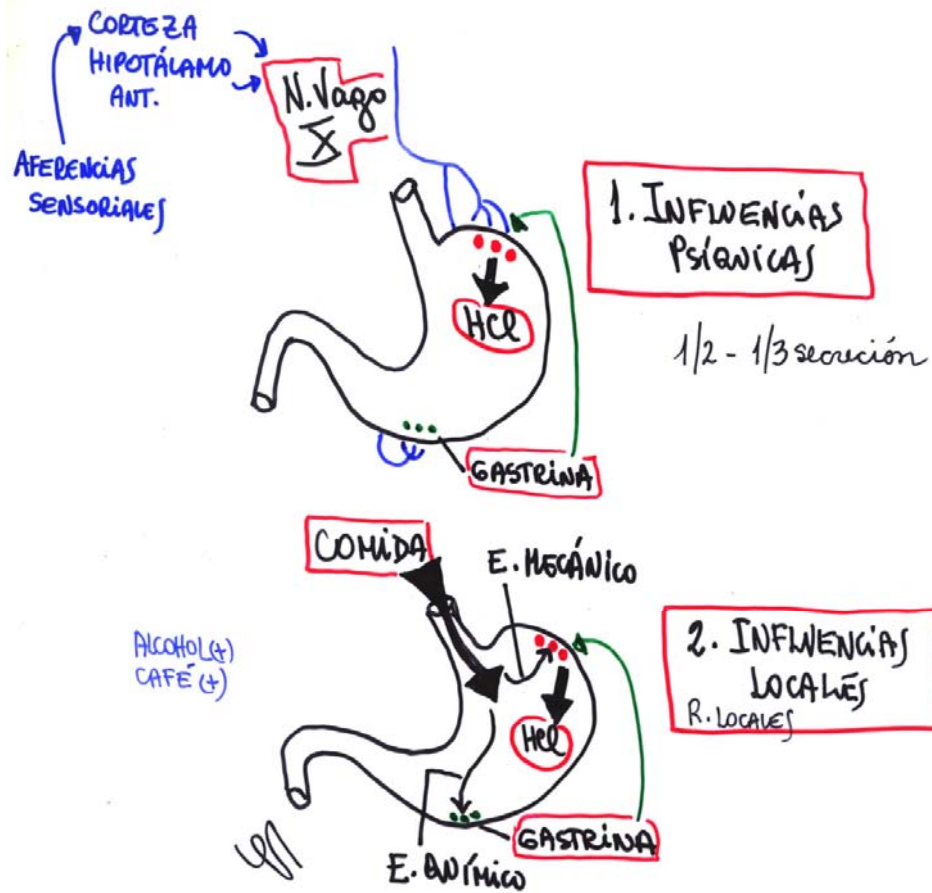 CORTEZA
HIPOTÁLAMO
ANT.
N. Vago
X
AFERENCIAS
SENSORIALES
1. INFLUENCIAS
PSÍQUICAS
HCl
1/2 - 1/3 secreción
GASTRINA
COMIDA
E. MECÁNICO
ALCOHOL (+)
CAFÉ (+)
2. INFLUENCIAS
LOCALES
R. LOCALES
HCl
GASTRINA
E. QUÍMICO